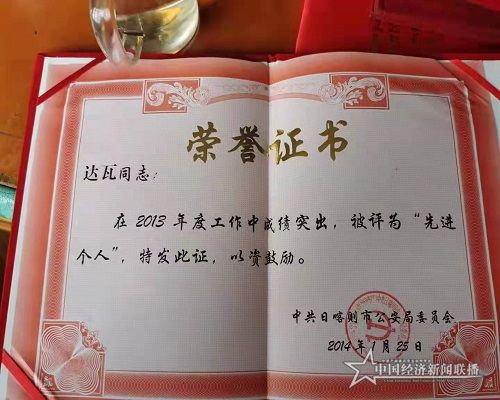 荣誉证书
达瓦同志：
在2013年度工作中成绩突出，被评为“先进
个人”，特发此证，以资鼓励。
中共日喀则市公安局委员会
2014年1月25日
中国经济新闻联播